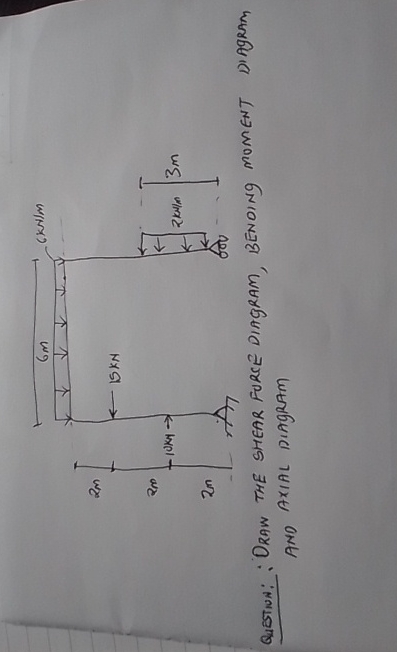 6m
6kN/m
2m
15 KN
2m
10KN
2m
2kN/m
3m
QUESTION: : DRAW THE SHEAR FORCE DIAGRAM, BENDING MOMENT DIAGRAM
AND AXIAL DIAGRAM